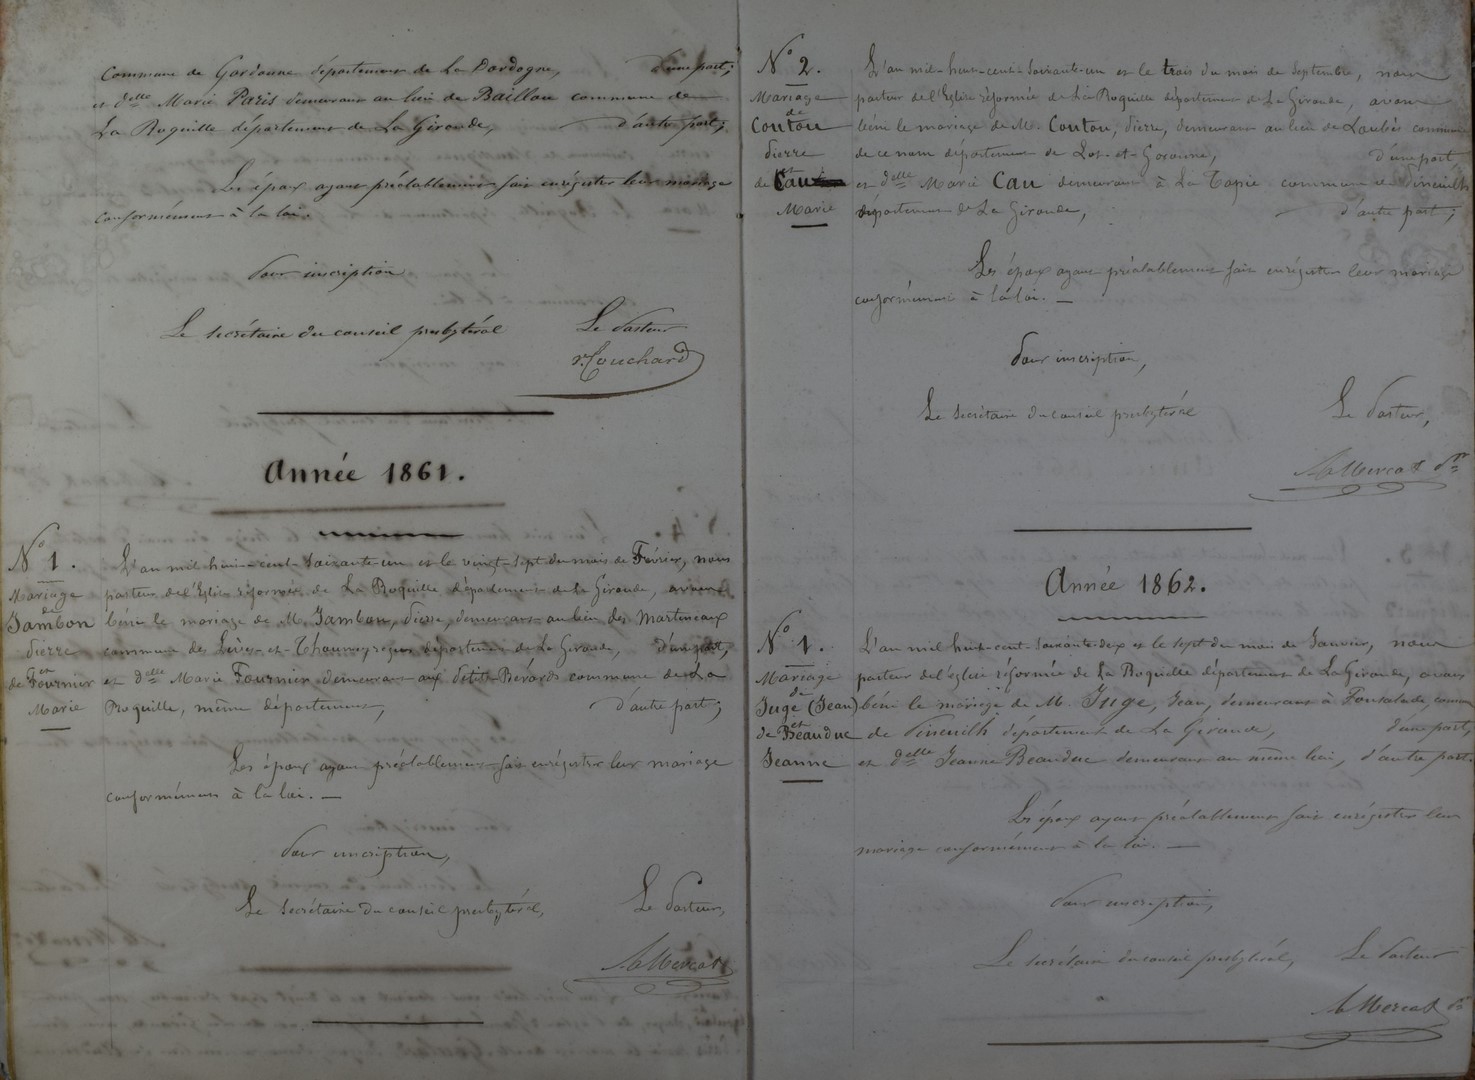 commune de Gardonne département de La Dordogne, d'une part;
et d<sup>elle</sup> Marie Paris demeurant au lieu de Baillou commune de
La Roquille département de La Gironde, d'autre part;
Les époux ayant préalablement fait enrégistrer leur mariage
conformément à la loi.
Pour inscription
Le secrétaire du conseil presbytéral Le Pasteur
Couchard
Année 1861.
N° 1.
Mariage
de
Jambon
Pierre
et
de Fournier
Marie
L'an mil huit-cent-soixante-un et le vingt-sept du mois de Février, nous
pasteur de l'Eglise réformée de La Roquille département de La Gironde, avons
béni le mariage de M. Jambon, Pierre, demeurant au lieu des Martineaux
commune de Lèves-et-Thoumeyragues département de La Gironde, d'une part,
et d<sup>elle</sup> Marie Fournier demeurant aux Petits-Bérards commune de La
Roquille, même département, d'autre part;
Les époux ayant préalablement fait enrégistrer leur mariage
conformément à la loi. —
Pour inscription,
Le Secrétaire du conseil presbytéral, Le Pasteur,
Mercat
N° 2.
Mariage
de
Coutou
Pierre
et
de Cau
Marie
L'an mil-huit-cent-soixante-un et le trois du mois de Septembre, nous
pasteur de l'Eglise réformée de La Roquille département de La Gironde, avons
béni le mariage de M. Coutou, Pierre, demeurant au lieu de Loubès commune
de ce nom département de Lot-et-Garonne, d'une part,
et d<sup>elle</sup> Marie Cau demeurant à La Tapie commune de Pineuilh
département de La Gironde, d'autre part;
Les époux ayant préalablement fait enrégistrer leur mariage
conformément à la loi. —
Pour inscription,
Le Secrétaire du conseil presbytéral Le Pasteur,
Mercat p<sup>r</sup>
Année 1862.
N° 1.
Mariage
de
Juge (Jean)
et
de Beauduc
Jeanne
L'an mil huit-cent-soixante-deux et le sept du mois de Janvier, nous
pasteur de l'église réformée de La Roquille département de La Gironde, avons
béni le mariage de M. Juge, Jean, demeurant à Fonsalade commune
de Pineuilh département de La Gironde, d'une part,
et d<sup>elle</sup> Jeanne Beauduc demeurant au même lieu, d'autre part.
Les époux ayant préalablement fait enrégistrer leur
mariage conformément à la loi. —
Pour inscription,
Le secrétaire du conseil presbytéral, Le Pasteur
Mercat